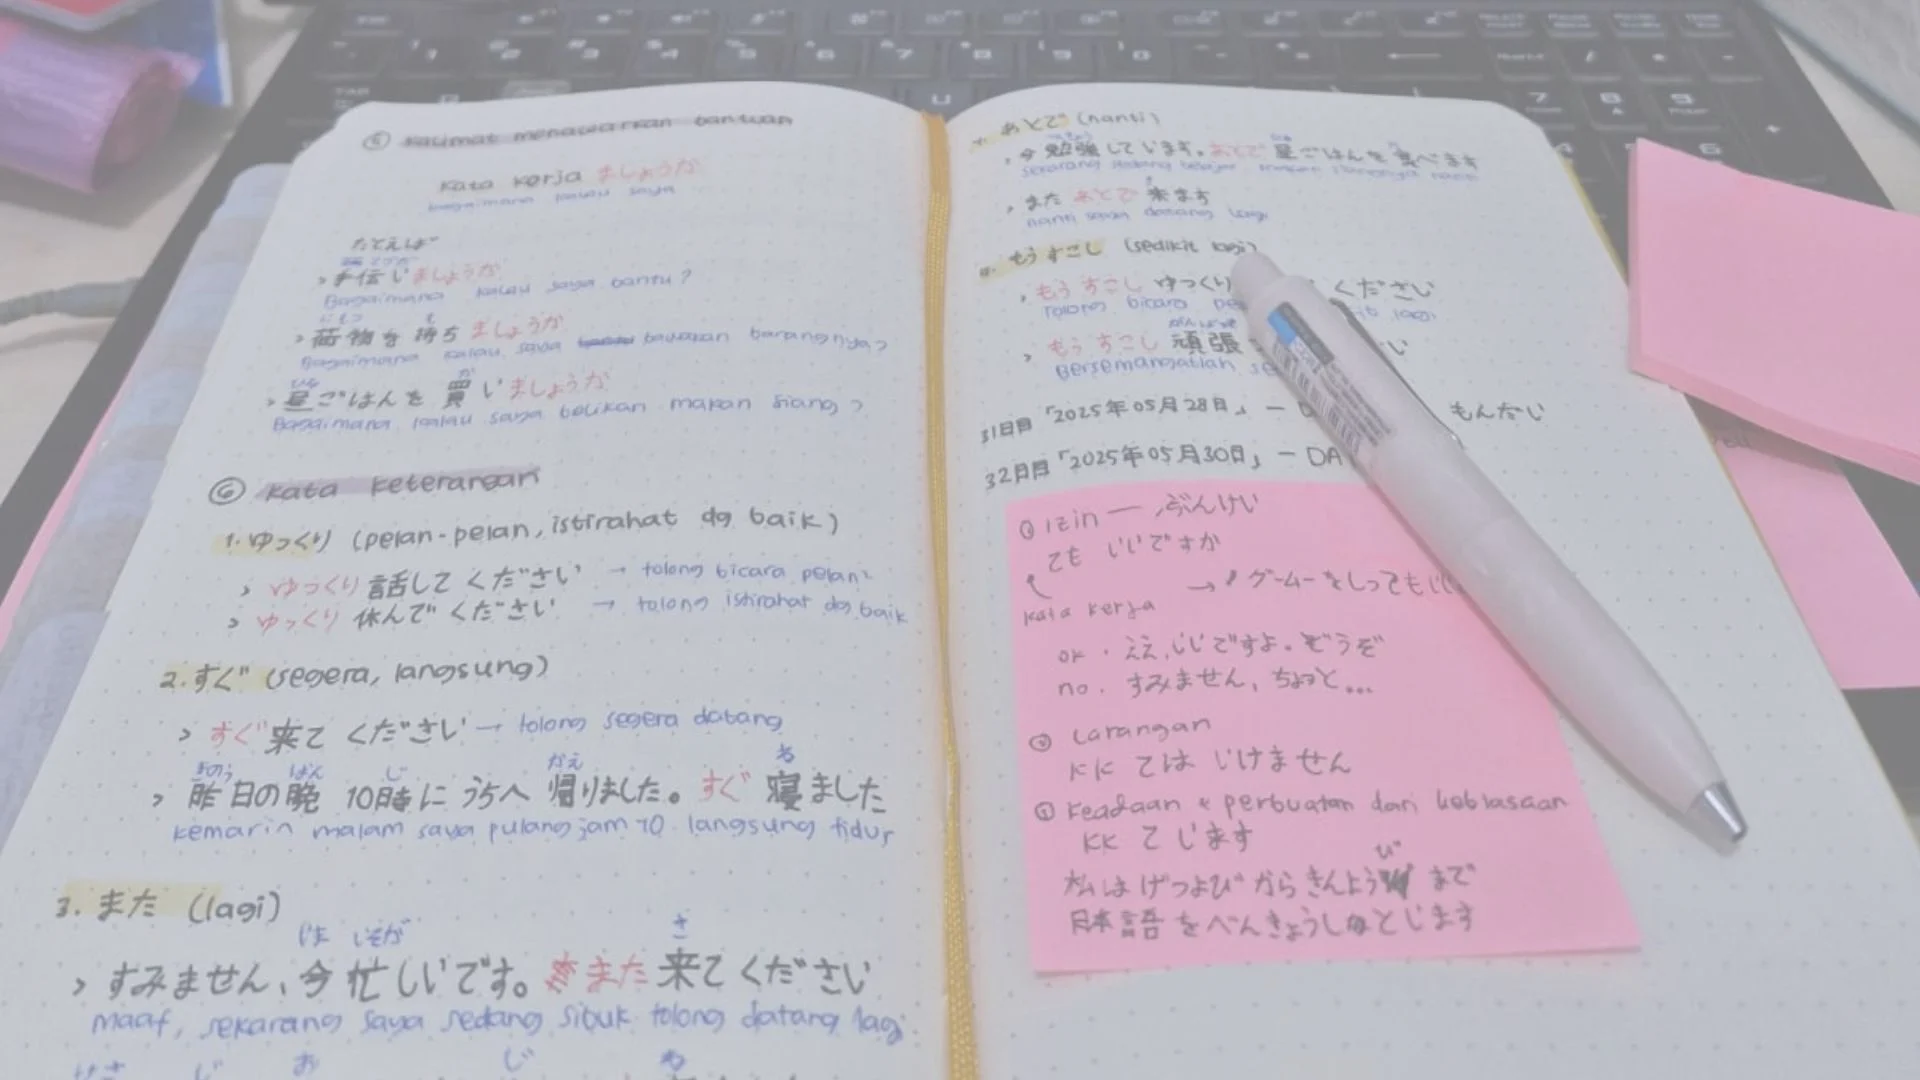 ⑤ Kalimat menawarkan bantuan
Kata kerja ましょうか
bagaimana kalau saya
たとえば
てつだ
> 手伝いましょうか
Bagaimana kalau saya bantu?
にもつ も
> 荷物を持ちましょうか
Bagaimana kalau saya bawakan barangnya?
ひる か
> 昼ごはんを買いましょうか
Bagaimana kalau saya belikan makan siang?
⑥ Kata keterangan
1. ゆっくり (pelan-pelan, istirahat dg baik)
> ゆっくり話してください → tolong bicara pelan²
> ゆっくり休んでください → tolong istirahat dg baik
2. すぐ (segera, langsung)
> すぐ来てください → tolong segera datang
きのう ばん じ かえ ね
> 昨日の晩 10時に うちへ 帰りました。すぐ 寝ました
kemarin malam saya pulang jam 10. langsung tidur
3. また (lagi)
いま いそが さ
> すみません、今忙しいです。また来てください
maaf, sekarang saya sedang sibuk tolong datang lagi
じ お じ ね
あとで (nanti)
べんきょう ひる
> 今勉強しています。あとで昼ごはんを食べます
sekarang sedang belajar makan siangnya nanti
> また あとで 来ます
nanti saya datang lagi
もうすこし (sedikit lagi)
> もうすこし ゆっくり ください
Tolong bicara lagi
がんば
> もうすこし 頑張 い
Bersemangatlah se
31日目「2025年05月28日」 — D もんだい
32日目「2025年05月30日」 — DA
① izin — ぶんけい
ても いいですか
kata kerja → ゲームーをしってもい
ok . ええ,いいですよ。どうぞ
no. すみません, ちょっと...
② Larangan
KK ては いけません
③ Keadaan & perbuatan dari kebiasaan
KK て います
び
私は げつよび から きんよう まで
日本語 を べんきょうし とじます